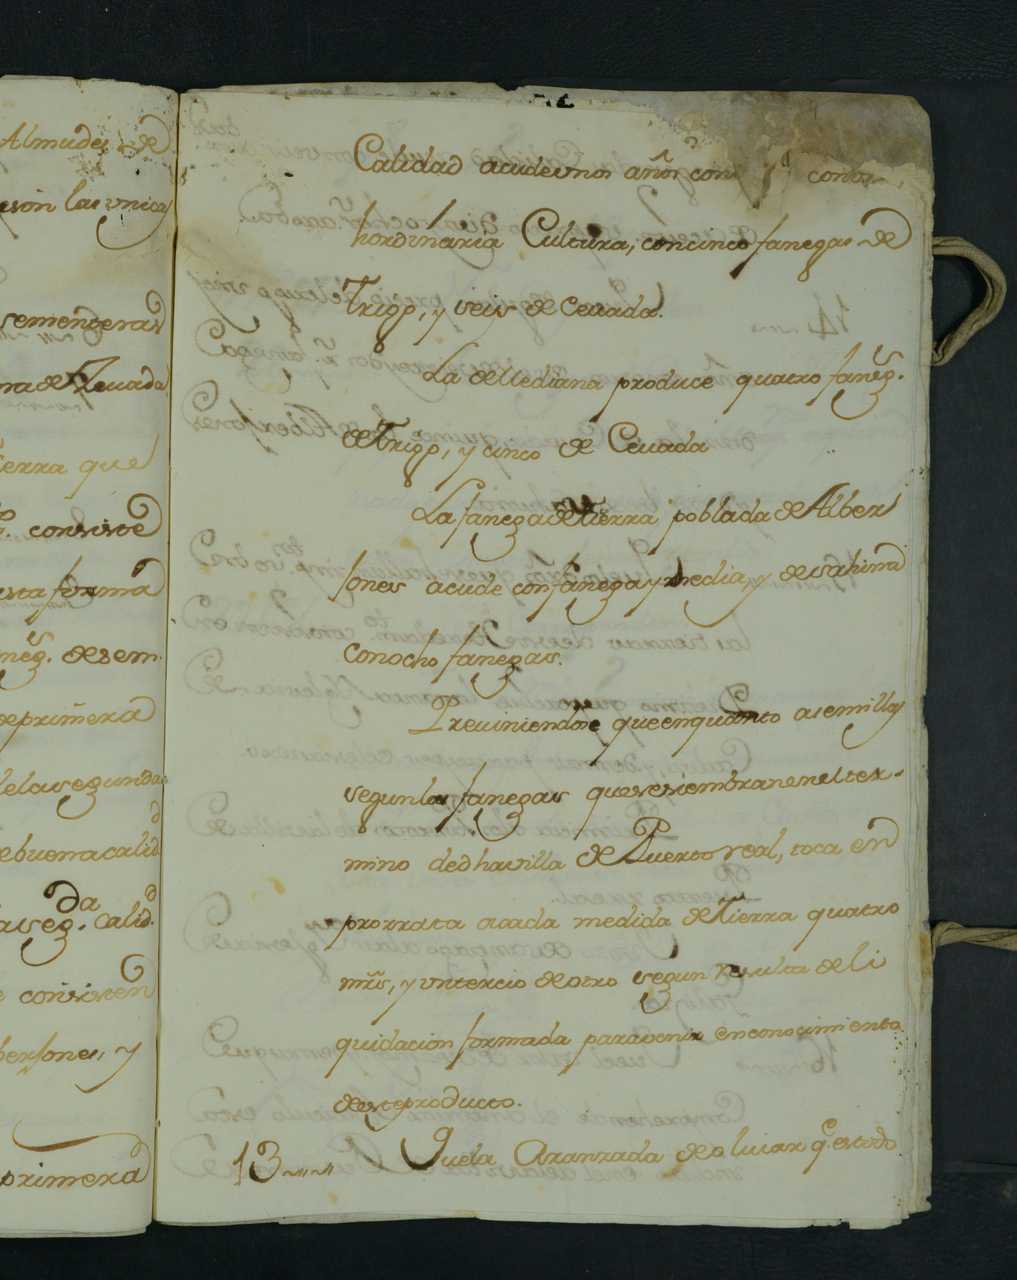 Almudes de
son las unicas
sementeras
na de Zevada
tierra que
consiste
esta forma
neg.s de sem
de primera
de la segunda
de buena calid.d
a seg.da Calid.d
e consisten
bersones, y
primera
Calidad acude unos años con
hordinaria Cultura, con cinco fanegas de
Trigo, y seis de Cevada.
La de Mediana produce quatro faneg.s
de Trigo, y cinco de Cevada
La fanega de tierra poblada de Alber
sones acude con fanega y media, y de sahina
con ocho fanegas.
Previniendose que en quanto a semillas
segun las fanegas que se siembran en el ter-
mino de dha villa de Puerto real, toca en
prorrata a cada medida de tierra quatro
mrs, y un tercio de otro segun resulta de li
quidacion formada para venir en conocimiento
de este producto.
13 Que la Aranzada de olivar q.e es todo